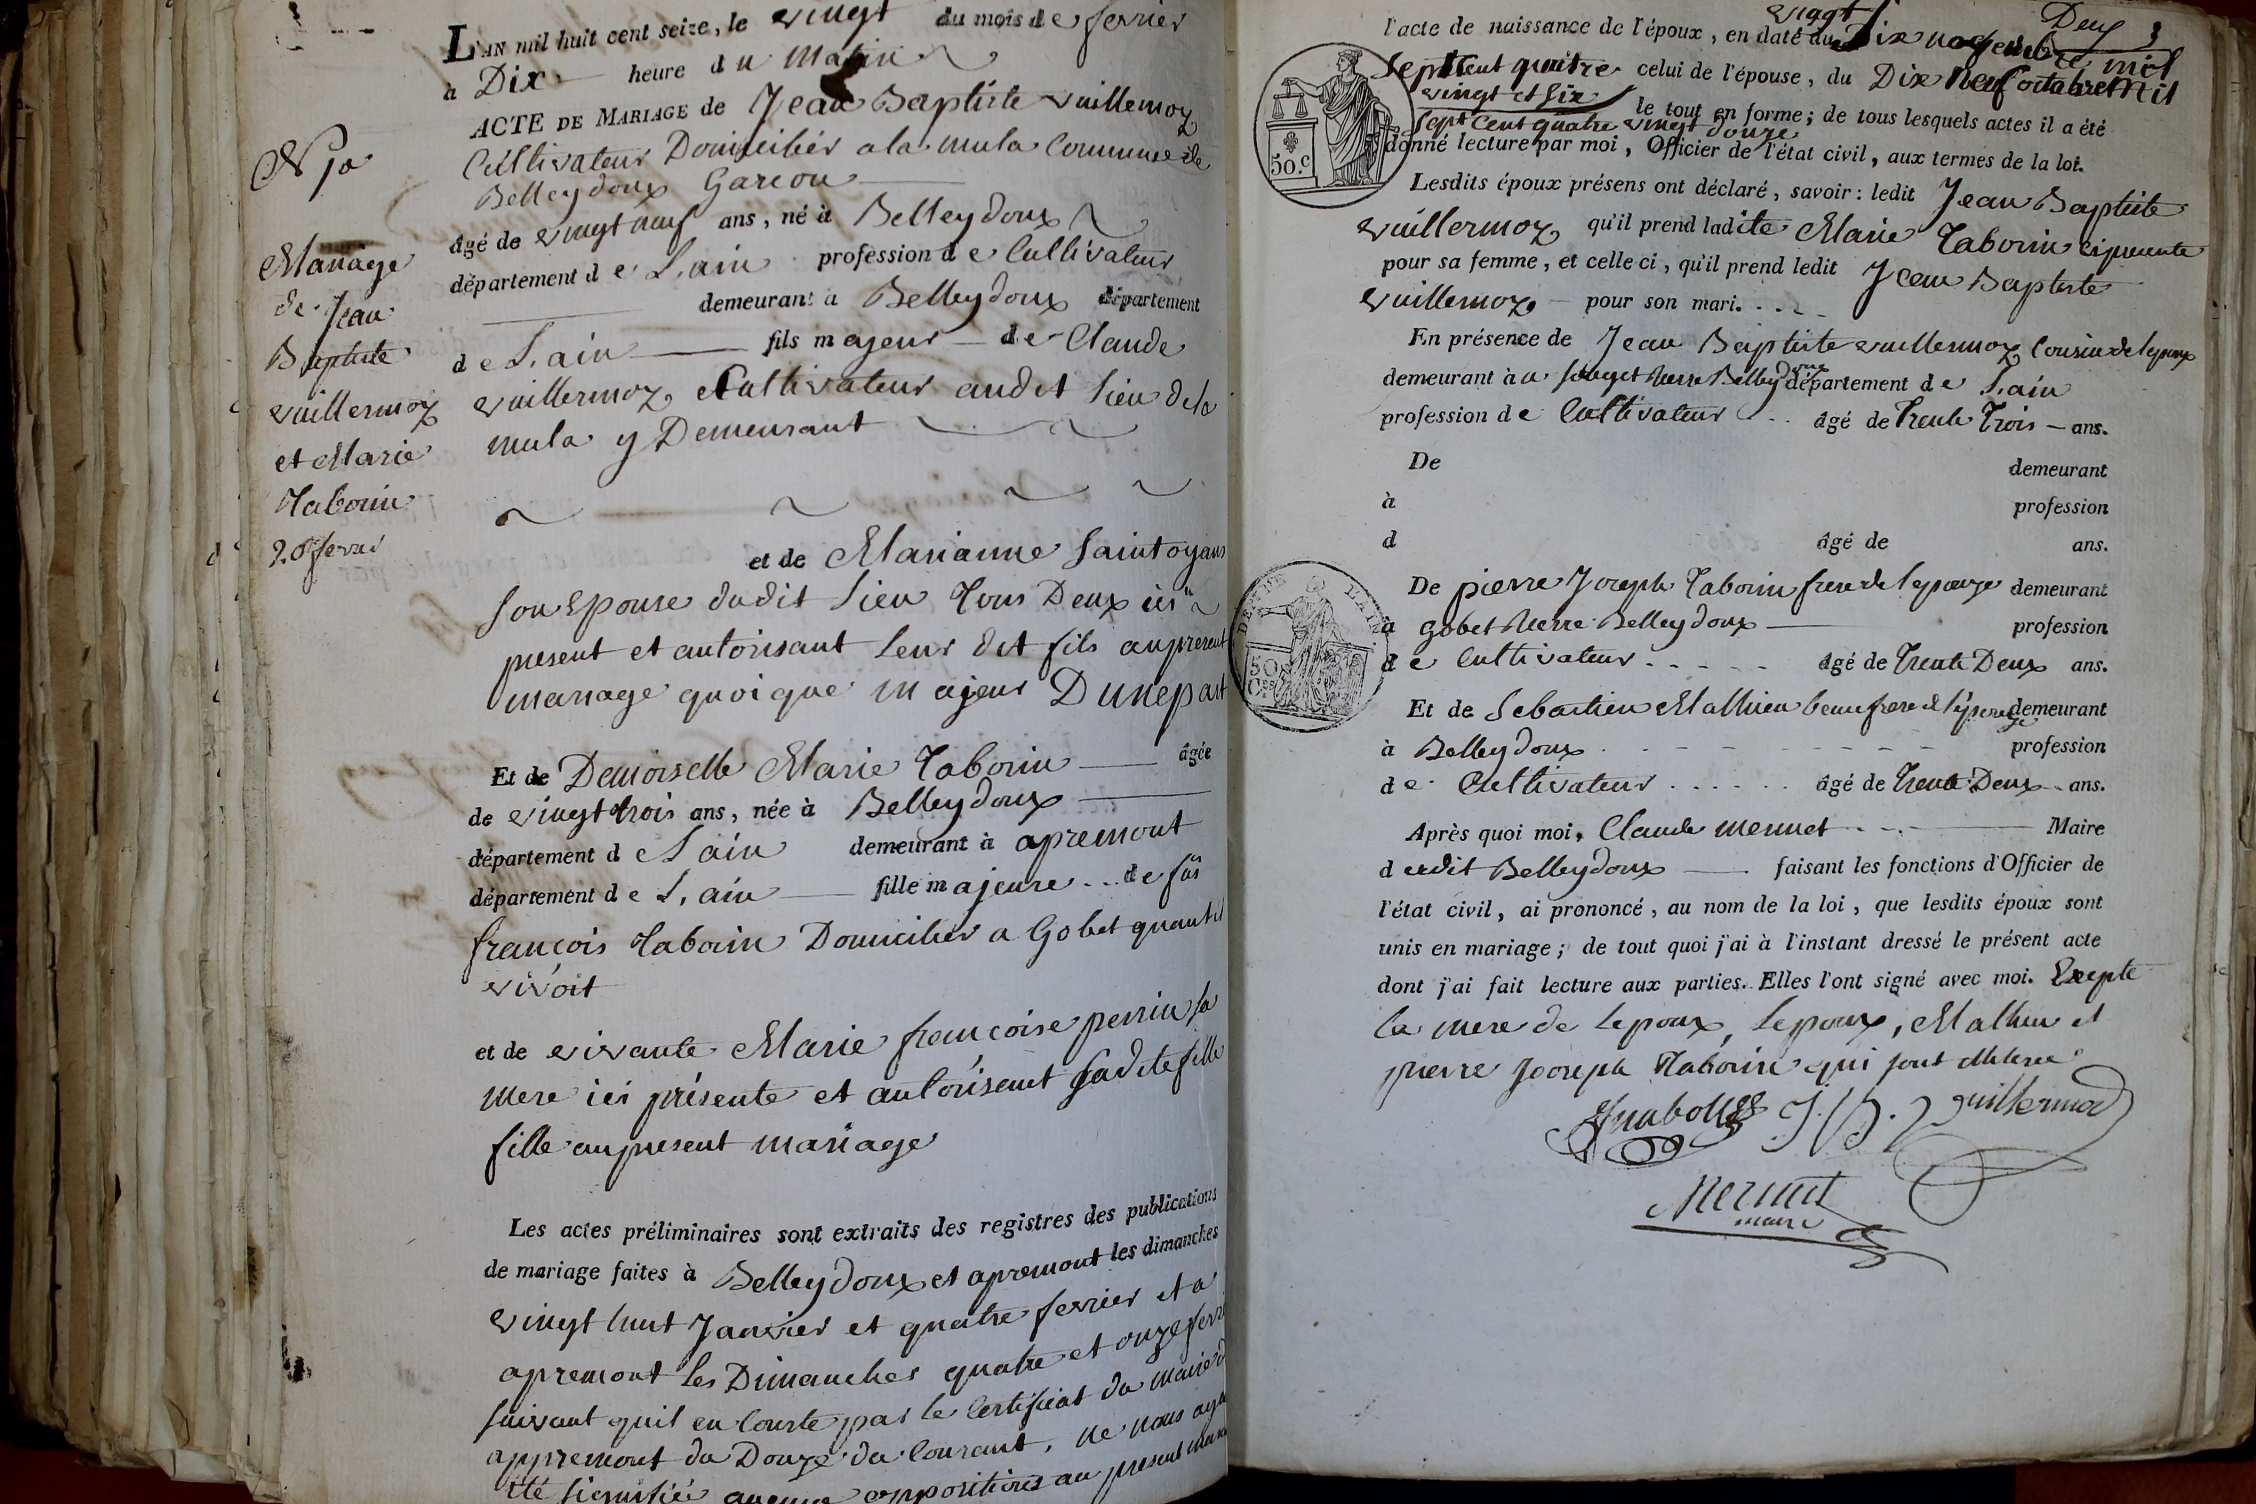 L'AN mil huit cent seize, le vingt du mois de fevrier
à Dix heure du Matin
ACTE DE MARIAGE de Jean Baptiste vuillermoz
Cultivateur Domicilier a la mula Commune de
Belleydoux Garcon
âgé de vingt neuf ans, né à Belleydoux
département de L'ain profession de Cultivateur
demeurant à Belleydoux département
de L'ain fils majeur de Claude
vuillermoz, Cultivateur audit lieu de la
mula y Demeurant
et de Marianne Saintoyans
son Epouse dudit lieu tous Deux ici
present et autorisant leur dit fils au present
mariage quoique majeur D'une part
Et de Demoiselle Marie Taborin âgée
de vingt trois ans, née à Belleydoux
département de L'ain demeurant à apremont
département de L'ain fille majeure de
françois Taborin Domicilier a Gobet quant il
vivoit
et de vivante Marie francoise perrin sa
mere ici présente et autorisant sadite fille
fille au present mariage
Les actes préliminaires sont extraits des registres des publications
de mariage faites à Belleydoux et apremont les dimanches
vingt huit Janvier et quatre fevrier et a
apremont les Dimanches quatre et onze fevri
suivant quil en Conste par le Certificat du maire d
appremont du Douze du Courant, ne nous aya
été signifiée aucune oppositions au present
No
Mariage
de Jean
Baptiste
vuillermoz
et Marie
Taborin
20 fevrier
Deux
vingt
l'acte de naissance de l'époux, en date du Dix novembre mil
Sept Cent quatre celui de l'épouse, du Dix Neuf octobre Mil
vingt et six
le tout en forme; de tous lesquels actes il a été
sept Cent quatre vingt douze
donné lecture par moi, Officier de l'état civil, aux termes de la loi.
50.c
Lesdits époux présens ont déclaré, savoir: ledit Jean Baptiste
vuillermoz, qu'il prend ladite Marie Taborin ci presente
pour sa femme, et celle ci, qu'il prend ledit Jean Baptiste
vuillermoz, pour son mari.
En présence de Jean Baptiste vuillermoz Cousin de lepoux
demeurant à Belleydoux département de L'ain
profession de Cultivateur âgé de Trente Trois ans.
De demeurant
à profession
d âgé de ans.
De pierre Joseph Taborin frere de lepouze demeurant
à gobet Belleydoux profession
de Cultivateur âgé de Trente Deux ans.
L'AIN
50
Cs
Et de Sebastien Mathieu beaufrere de l'epouze demeurant
à Belleydoux profession
de Cultivateur âgé de Trente Deux ans.
Après quoi moi, Claude Mermet Maire
dudit Belleydoux faisant les fonctions d'Officier de
l'état civil, ai prononcé, au nom de la loi, que lesdits époux sont
unis en mariage; de tout quoi j'ai à l'instant dressé le présent acte
dont j'ai fait lecture aux parties. Elles l'ont signé avec moi. Exepté
la mere de lepoux, lepoux, Mathieu et
pierre Jooseph Taborin qui sont
J. B. Vuillermoz
Mermet
maire